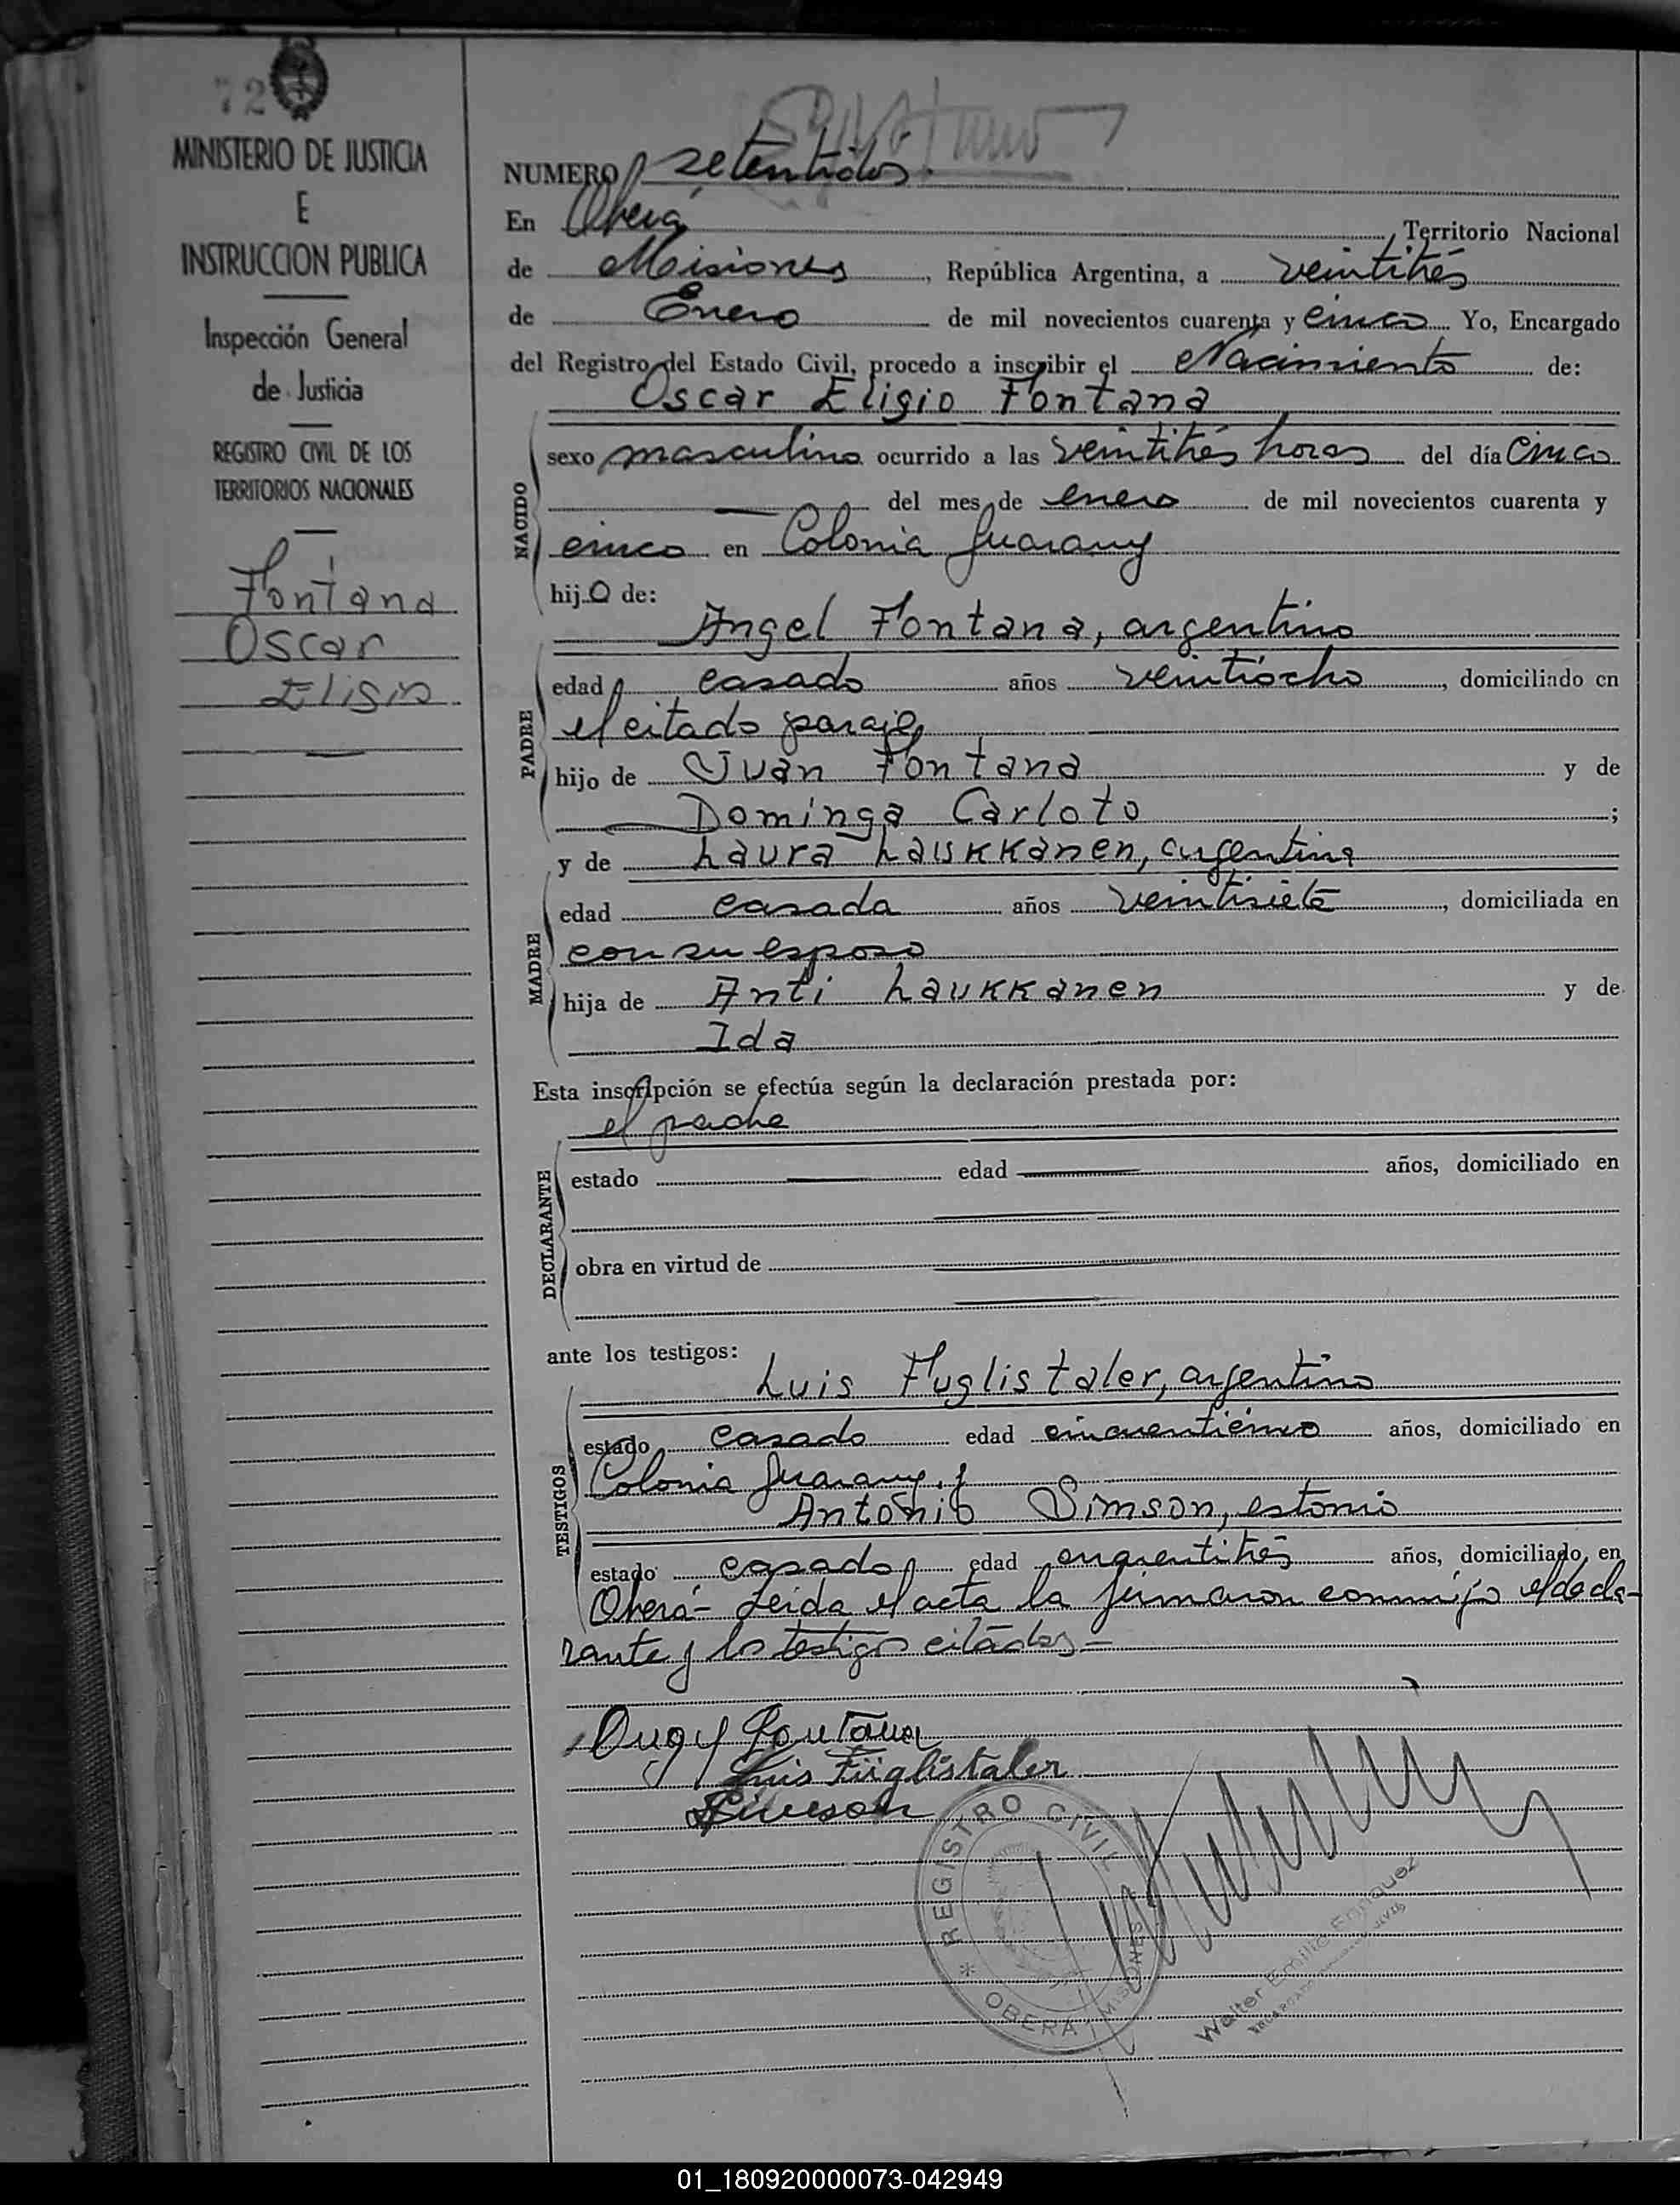 72
MINISTERIO DE JUSTICIA
E
INSTRUCCION PUBLICA
Inspección General
de Justicia
REGISTRO CIVIL DE LOS
TERRITORIOS NACIONALES
Fontana
Oscar
Eligio
NUMERO setentidos
En Oberá, Territorio Nacional
de Misiones, República Argentina, a veintitrés
de Enero de mil novecientos cuarenta y cinco Yo, Encargado
del Registro del Estado Civil, procedo a inscribir el Nacimiento de:
Oscar Eligio Fontana
NACIDO
sexo masculino ocurrido a las veintitrés horas del día cinco
del mes de enero de mil novecientos cuarenta y
cinco en Colonia Guarany
hijo de:
Angel Fontana, argentino
PADRE
edad casado años veintiocho, domiciliado en
el citado paraje
hijo de Juan Fontana y de
Dominga Carloto;
y de Laura Laukkanen, argentina
MADRE
edad casada años veintisiete, domiciliada en
con su esposo
hija de Anti Laukkanen y de
Ida
Esta inscripción se efectúa según la declaración prestada por:
el padre
DECLARANTE
estado edad años, domiciliado en
obra en virtud de
ante los testigos:
Luis Fuglistaler, argentino
TESTIGOS
estado casado edad años, domiciliado en
Colonia Guarany, y
Antonio Simson, estonio
estado casado edad años, domiciliado en
Oberá- Leida el acta la firmaron conmigo el decla-
rante y los testigos citados-
Angel Fontana
Luis Füglistaler
Simson
REGISTRO CIVIL
* OBERA MISIONES
Walter Emilio Enriquez
01_180920000073-042949